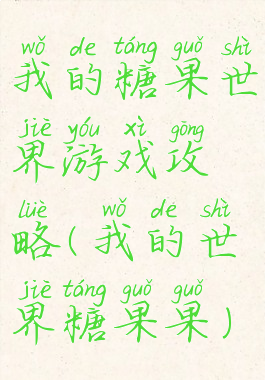 wǒ de táng guǒ shì
我的糖果世
jiè yóu xì gōng
界游戏攻
lüè wǒ de shì
略(我的世
jiè táng guǒ guǒ
界糖果果)